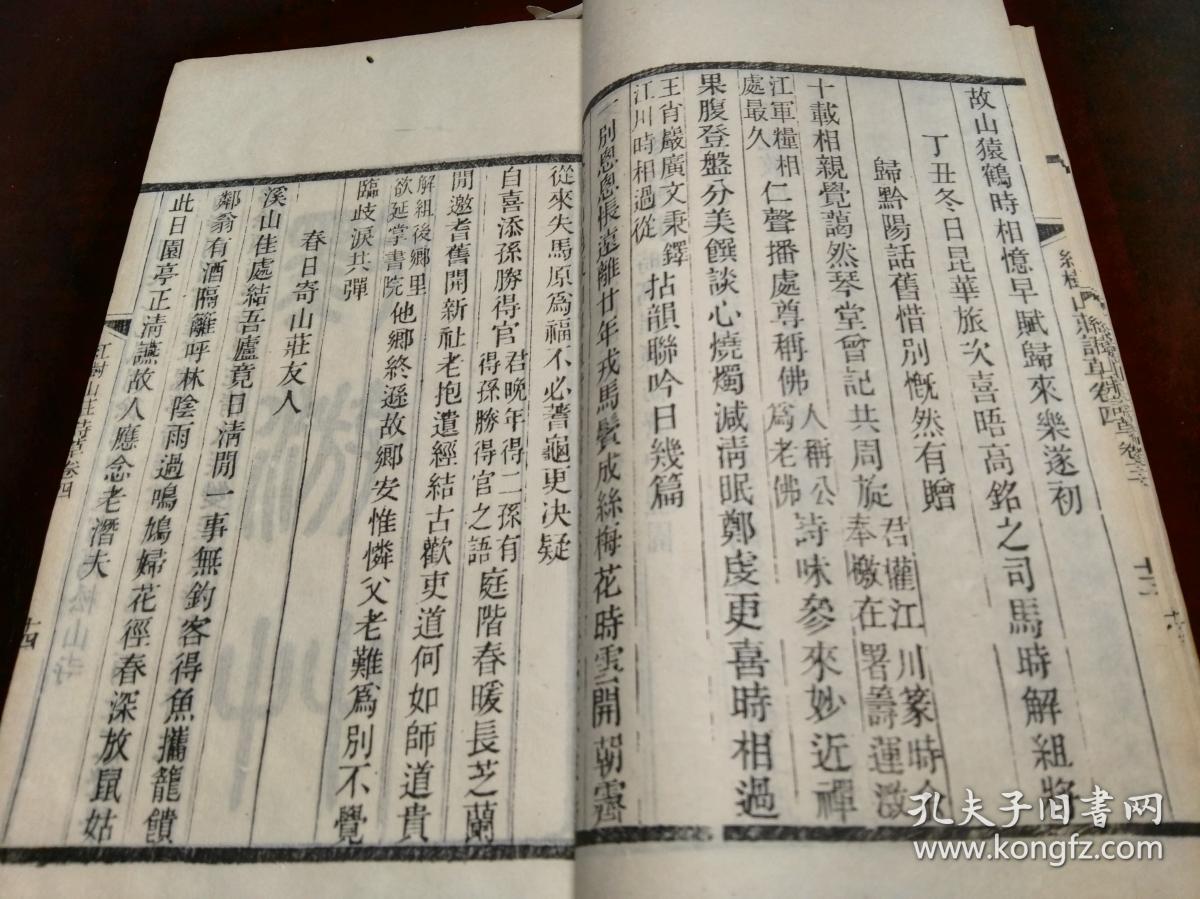 故山猿鶴時相憶早賦歸來樂遂初
丁丑冬日昆華旅次喜晤高銘之司馬時解組將
歸黔陽話舊惜別慨然有贈
十載相親覺藹然琴堂曾記共周旋君權江川篆時余
奉檄在署籌運澂
江軍糧相
處最久仁聲播處尊稱佛人稱公
爲老佛詩味參來妙近禪
果腹登盤分美饌談心燒燭減清眠鄭虔更喜時相過
王肖巖廣文秉鐸
江川時相過從拈韻聯吟日幾篇
一別悤悤悵遠離廿年戎馬鬢成絲梅花時雲開朝霽
從來失馬原爲福不必蓍龜更決疑
自喜添孫勝得官君晚年得二孫有
得孫勝得官之語庭階春暖長芝蘭
閒邀耆舊開新社老抱遺經結古歡吏道何如師道貴
解組後鄉里
欲延掌書院他鄉終遜故鄉安惟憐父老難爲別不覺
臨歧淚共彈
春日寄山莊友人
溪山佳處結吾廬竟日清閒一事無釣客得魚攜籠饋
鄰翁有酒隔籬呼林陰雨過鳴鳩婦花徑春深放鼠姑
此日園亭正清讌故人應念老潛夫
紅樹山莊詩草卷四
十四
孔夫子旧书网
www.kongfz.com